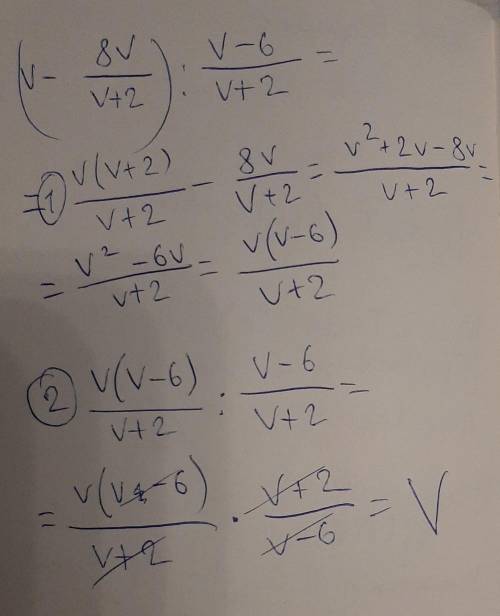 (v - 8v/(v+2)) : (v-6)/(v+2) =
= ① v(v+2)/(v+2) - 8v/(v+2) = (v²+2v-8v)/(v+2) =
= (v²-6v)/(v+2) = v(v-6)/(v+2)
② v(v-6)/(v+2) : (v-6)/(v+2) =
= v(v-6)/(v+2) · (v+2)/(v-6) = V